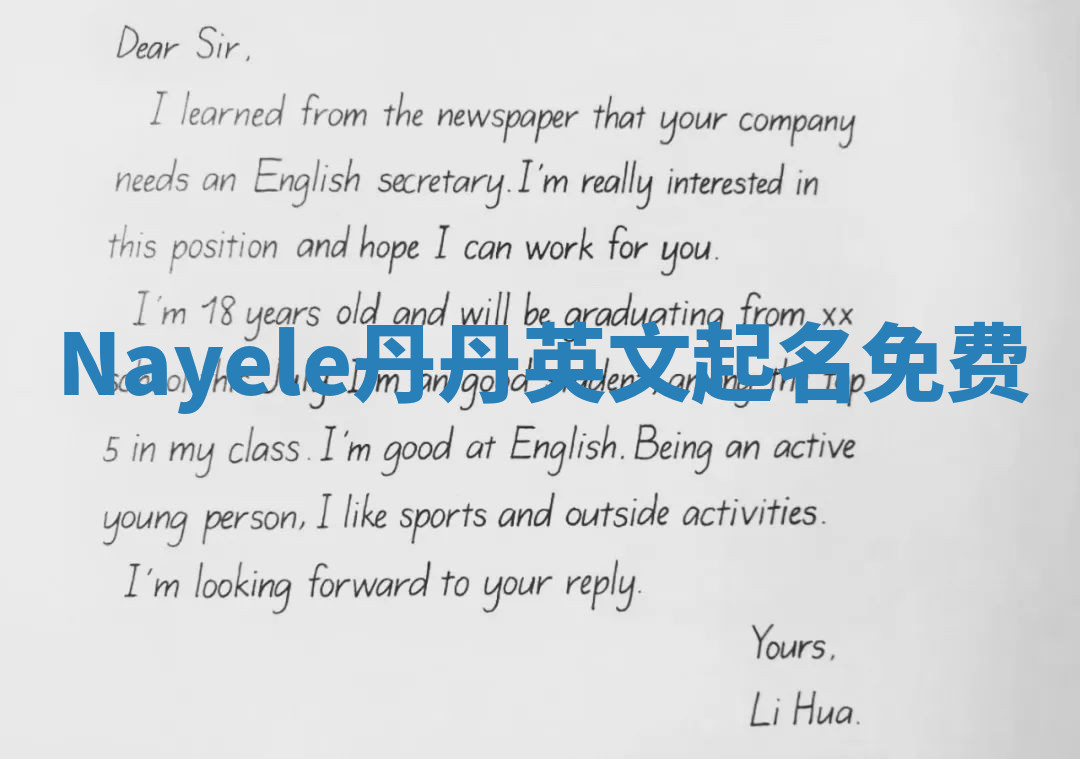 Dear Sir,
I learned from the newspaper that your company
needs an English secretary. I'm really interested in
this position and hope I can work for you.
I'm 18 years old and will be graduating from xx
Nayele丹丹英文起名免费
July. I'm an good
5 in my class. I'm good at English. Being an active
young person, I like sports and outside activities.
I'm looking forward to your reply.
Yours,
Li Hua.